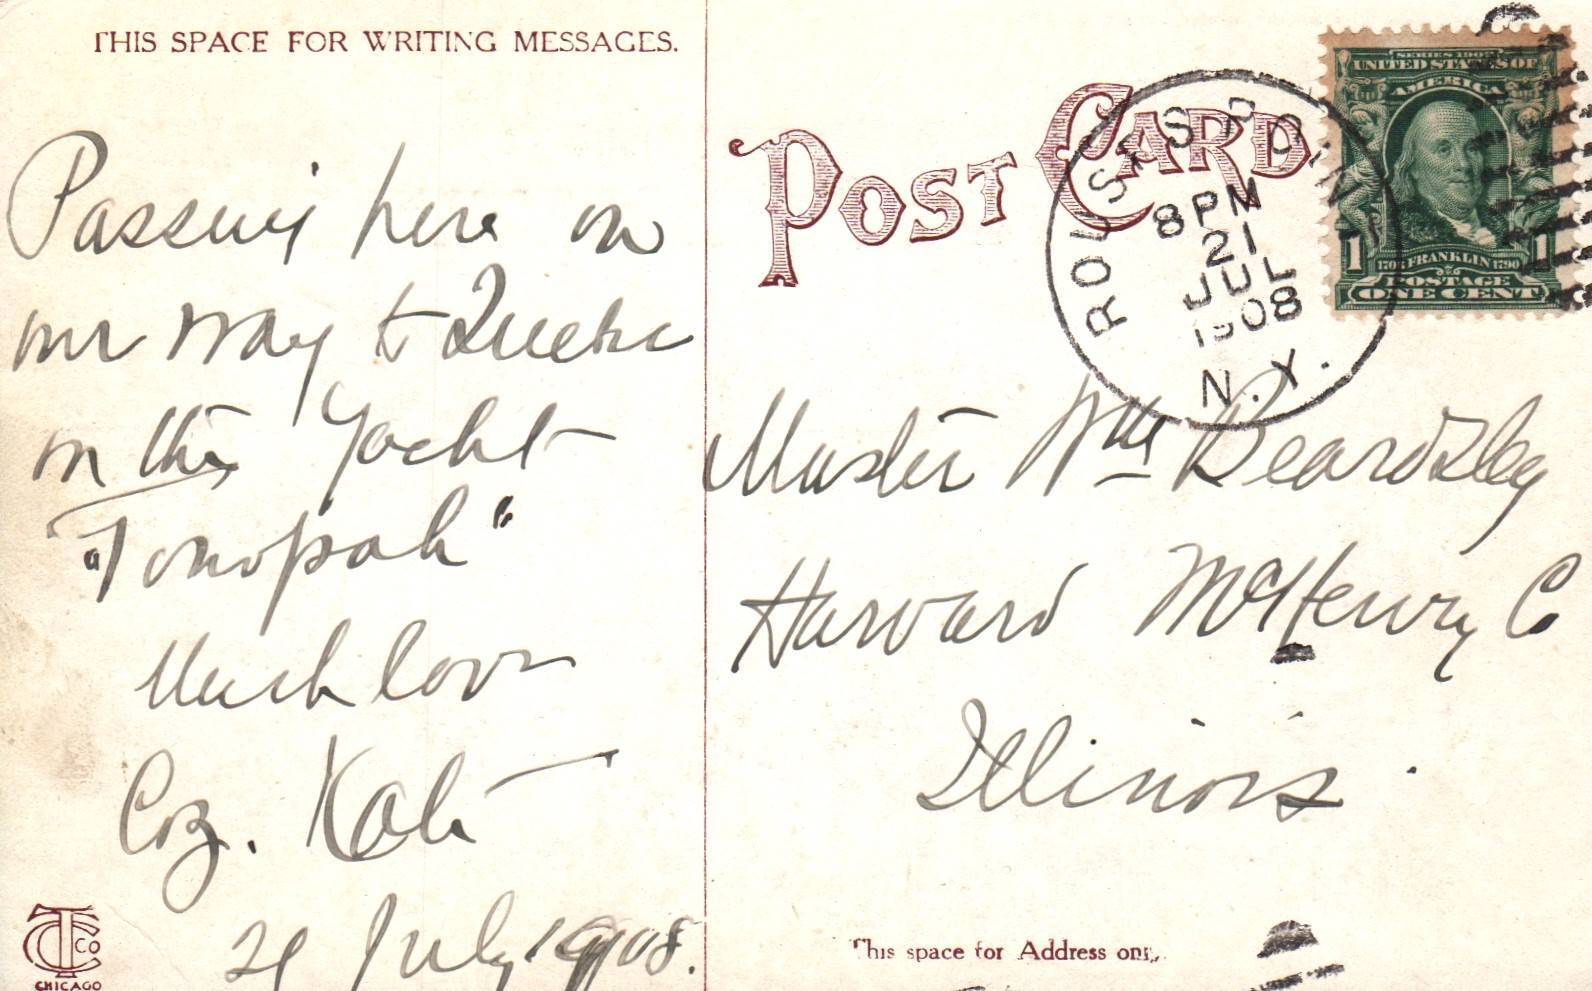 THIS SPACE FOR WRITING MESSAGES.
Passing here on
our way to Quebec
on the Yacht
"Tonopah"
Much love
Coz. Kate
21 July 1908.
TC Co
CHICAGO
POST CARD
ROUSES POINT
8 PM
21
JUL
1908
N.Y.
SERIES 1902
UNITED STATES OF
AMERICA
1 1
1706 FRANKLIN 1790
POSTAGE
ONE CENT
Master Wm Beardsley
Harvard McHenry Co
Illinois.
This space for Address only.